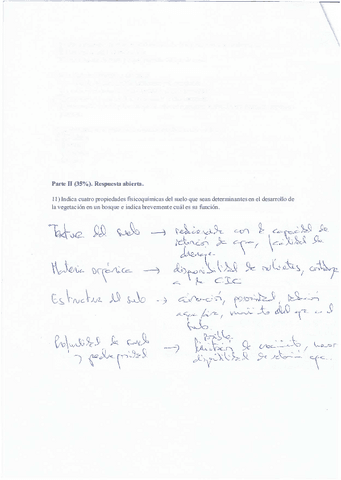 Parte II (35%). Respuesta abierta.
11) Indica cuatro propiedades fisicoquímicas del suelo que sean determinantes en el desarrollo de
la vegetación en un bosque e indica brevemente cuál es su función.
Textura del suelo → relacionada con la capacidad de
retención de agua, facilidad de
drenaje.
Materia orgánica → disponibilidad de nutrientes, contribuye
a la CIC
Estructura del suelo → aireación, porosidad,
movimiento del agua en el
suelo
Profundidad de suelo →
y pedregosidad